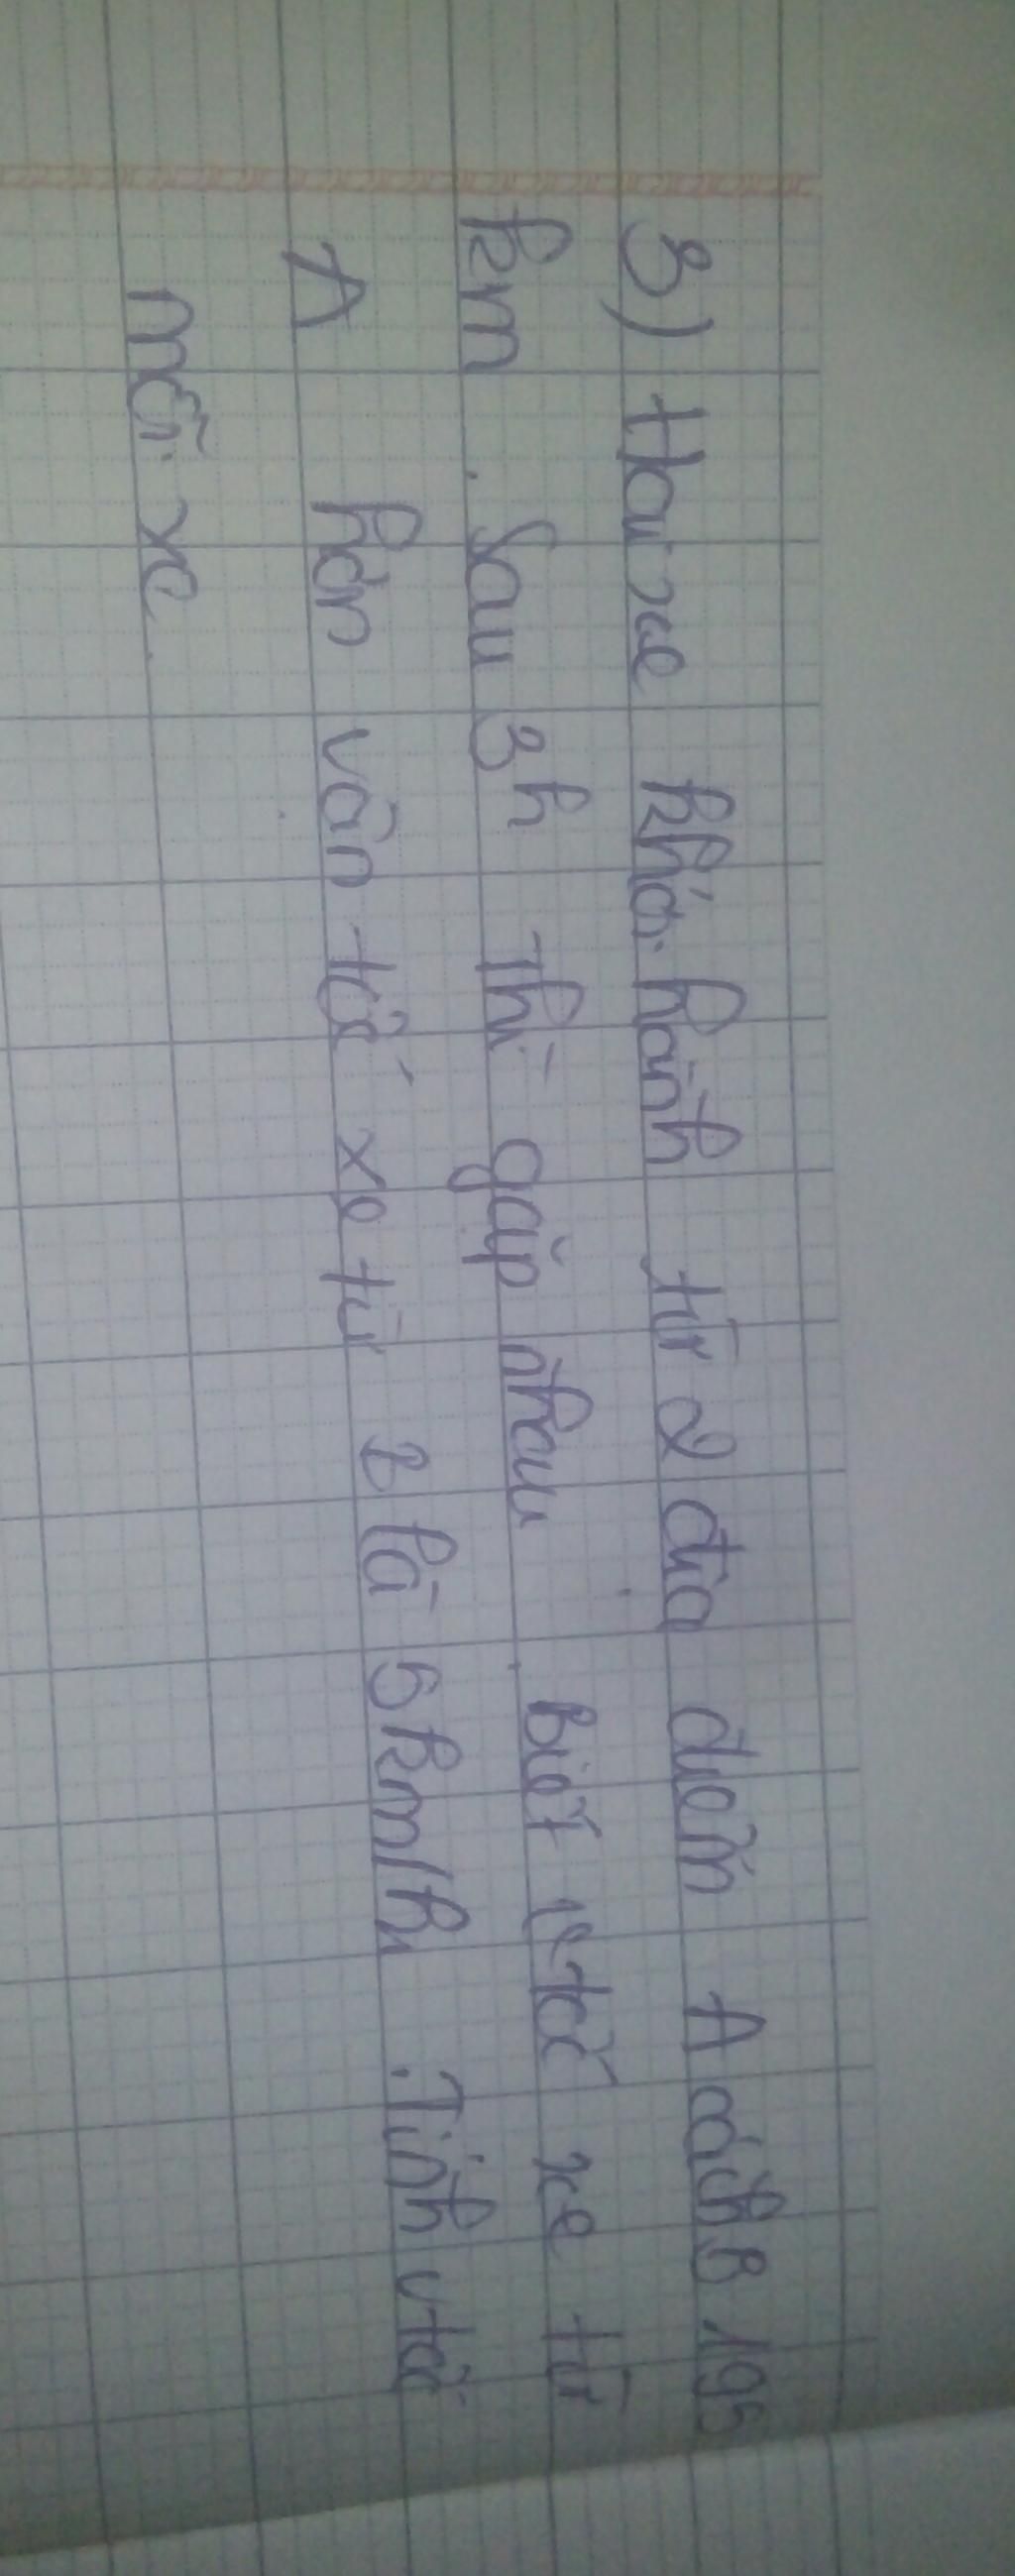 3) Hai xe khởi hành từ 2 địa điểm A cách B 195
km. Sau 3h thì gặp nhau. biết vtốc xe từ
A hơn vân tốc xe từ B là 5km/h. Tính vtốc
mỗi xe.